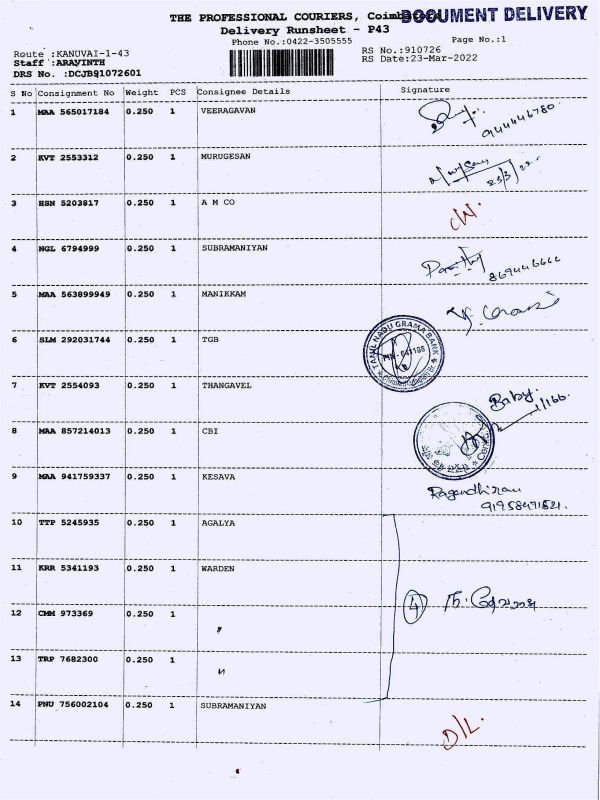 THE PROFESSIONAL COURIERS, Coimbatore
DOCUMENT DELIVERY
Delivery Runsheet - P43
Phone No.:0422-3505555
Page No.:1
Route :KANUVAI-1-43
RS No.:910726
Staff :ARAVINTH
RS Date:23-Mar-2022
DRS No. :DCJB91072601
S No Consignment No Weight PCS Consignee Details Signature
1 MAA 565017184 0.250 1 VEERAGAVAN
944446780
2 KVT 2553312 0.250 1 MURUGESAN
23/3/22
3 HSN 5203817 0.250 1 A M CO
4 NGL 6794999 0.250 1 SUBRAMANIYAN
869446666
5 MAA 563899949 0.250 1 MANIKKAM
6 SLM 292031744 0.250 1 TGB
TAMIL NADU GRAMA BANK
7 KVT 2554093 0.250 1 THANGAVEL
Baby.
8 MAA 857214013 0.250 1 CBI
9 MAA 941759337 0.250 1 KESAVA
Ragendhiran
10 TTP 5245935 0.250 1 AGALYA
11 KRR 5341193 0.250 1 WARDEN
4
12 CMM 973369 0.250 1 "
13 TRP 7682300 0.250 1 "
14 PNU 756002104 0.250 1 SUBRAMANIYAN
D/L.